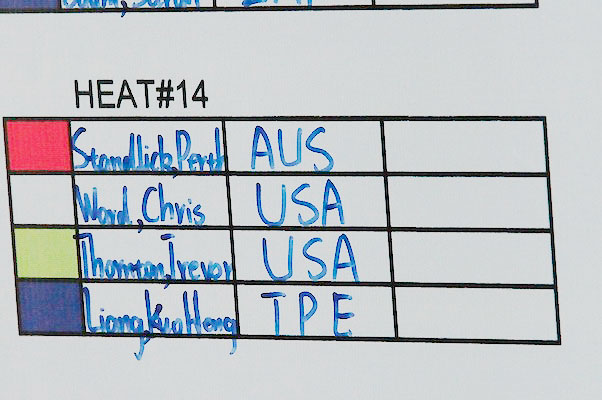 HEAT#14
Standlick,Perth AUS
Ward,Chris USA
Thornton,Trevor USA
Liang,KuoHeng TPE